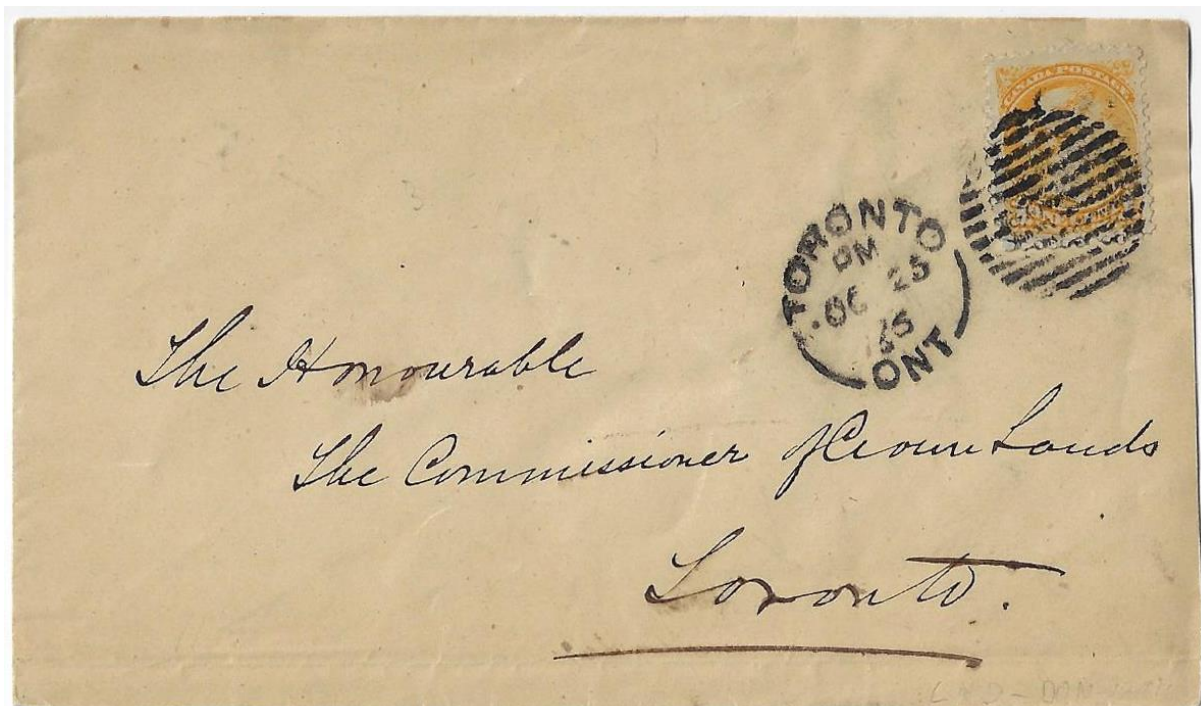 CANADA POSTAGE
TORONTO
PM
OC 25
ONT
The Honourable
The Commissioner of Crown Lands
Toronto.